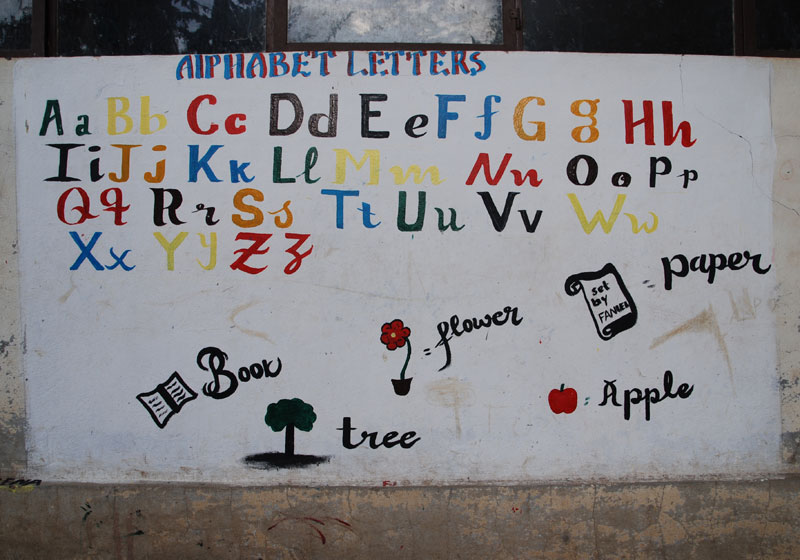 AlPHABET LETTERS
Aa Bb Cc Dd Ee Ff Gg Hh
Ii Jj Kk Ll Mm Nn Oo Pp
Qq Rr Ss Tt Uu Vv Ww
Xx Yy Zz
set
by
= paper
= flower
Book
= Apple
tree